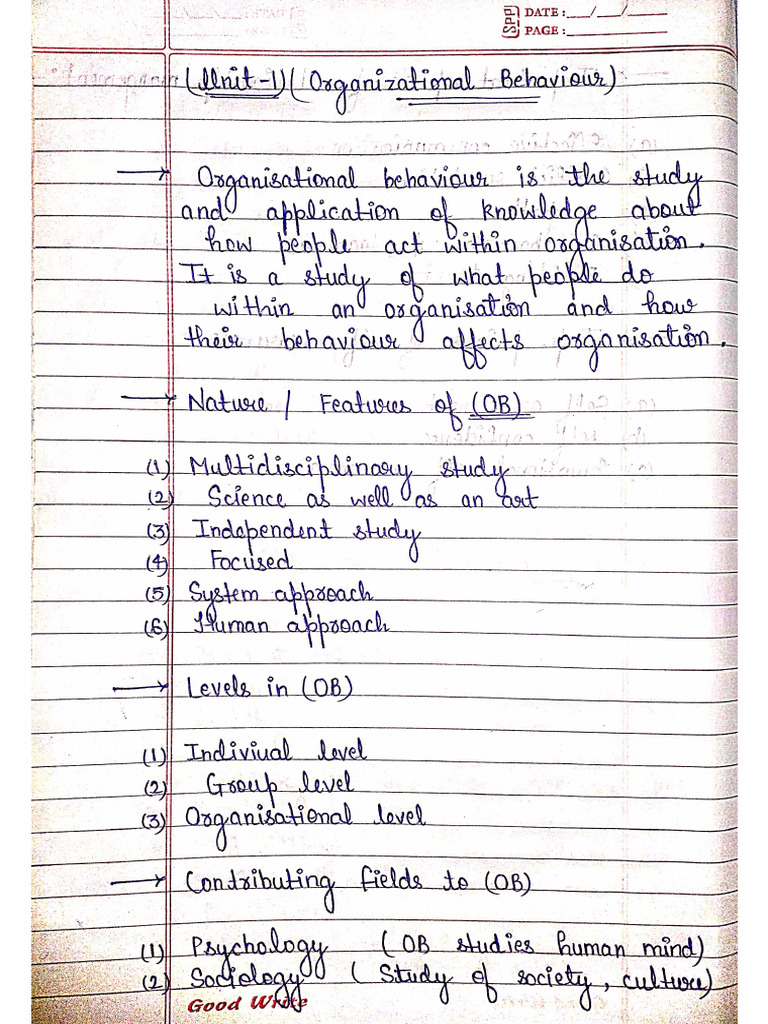 SPP DATE:___/___/_____
PAGE:__________
(Unit-1) (Organizational Behaviour)
→ Organisational behaviour is the study
and application of knowledge about
how people act within organisation.
It is a study of what people do
within an organisation and how
their behaviour affects organisation.
→ Nature / Features of (OB)
(1) Multidisciplinary study
(2) Science as well as an art
(3) Independent study
(4) Focused
(5) System approach
(6) Human approach
→ Levels in (OB)
(1) Indiviual level
(2) Group level
(3) Organisational level
→ Contributing fields to (OB)
(1) Psychology (OB studies human mind)
(2) Sociology (Study of society, culture)
Good Write